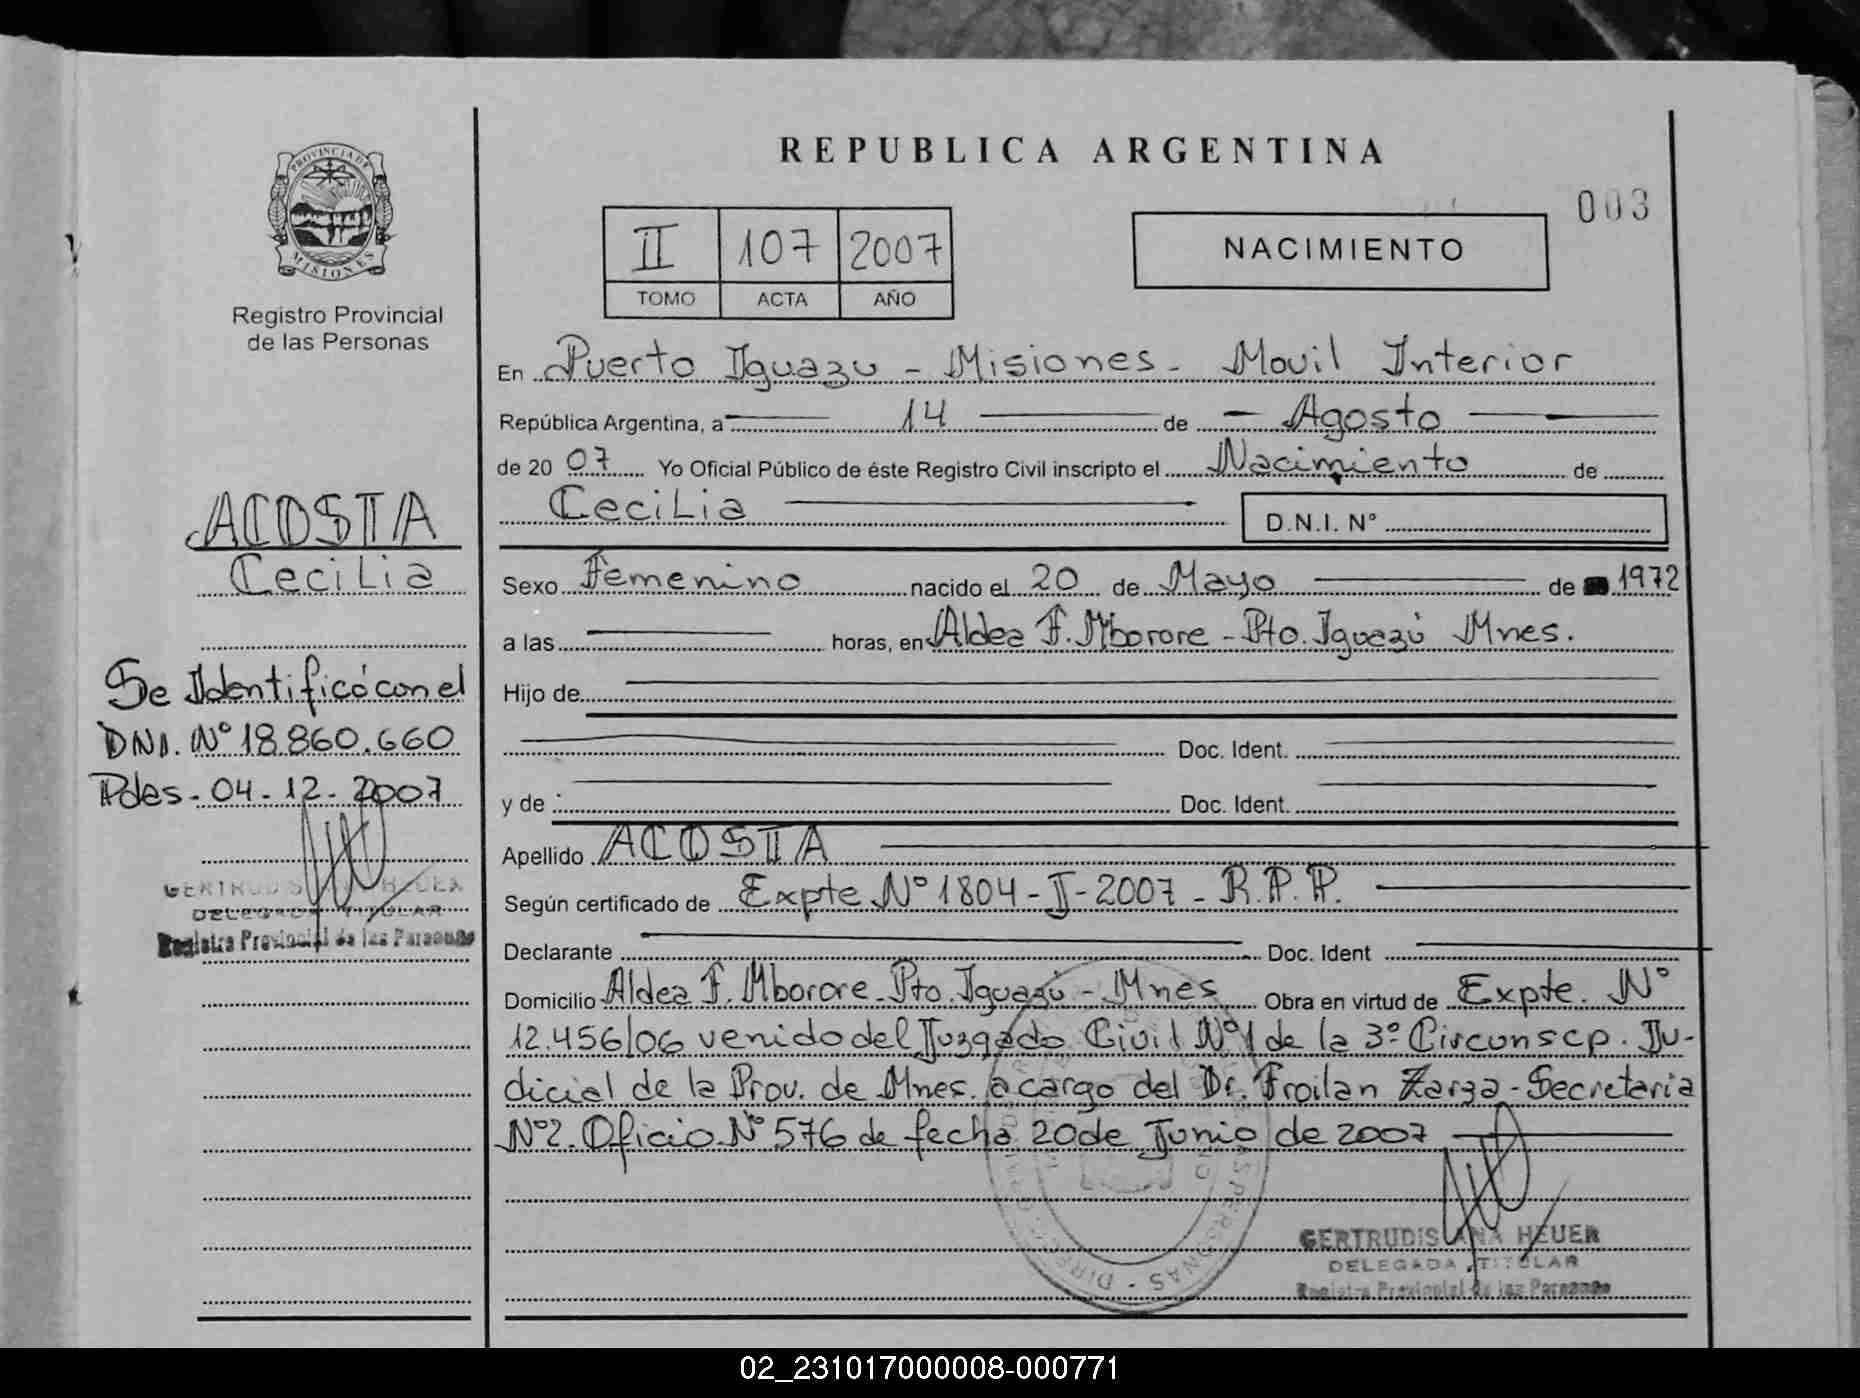 PROVINCIA DE
MISIONES
Registro Provincial
de las Personas
ACOSTA
Cecilia
Se Identificó con el
DNI. Nº 18.860.660
Pdas. 04-12-2007
DELEGADA TITULAR
Registro Provincial de las Personas
REPUBLICA ARGENTINA
003
II 107 2007
TOMO ACTA AÑO
NACIMIENTO
En Puerto Iguazu - Misiones - Movil Interior
República Argentina, a 14 de Agosto
de 20 07 Yo Oficial Público de éste Registro Civil inscripto el Nacimiento de
Cecilia D.N.I. Nº
Sexo Femenino nacido el 20 de Mayo de 1972
a las horas, en Aldea F. Mborore - Pto. Iguazú Mnes.
Hijo de
Doc. Ident.
y de Doc. Ident.
Apellido ACOSTA
Según certificado de Expte Nº 1804-I-2007 - R.P.P.
Declarante Doc. Ident
Domicilio Aldea F. Mborore - Pto. Iguazú - Mnes Obra en virtud de Expte. Nº
12.456/06 venido del Juzgado Civil Nº 1 de la 3º Circunscp. Ju-
dicial de la Prov. de Mnes. a cargo del Dr. Froilan Zarza - Secretaria
Nº 2. Oficio Nº 576 de fecha 20 de Junio de 2007
GERTRUDIS ANA HEUER
DELEGADA TITULAR
Registro Provincial de las Personas
02_231017000008-000771